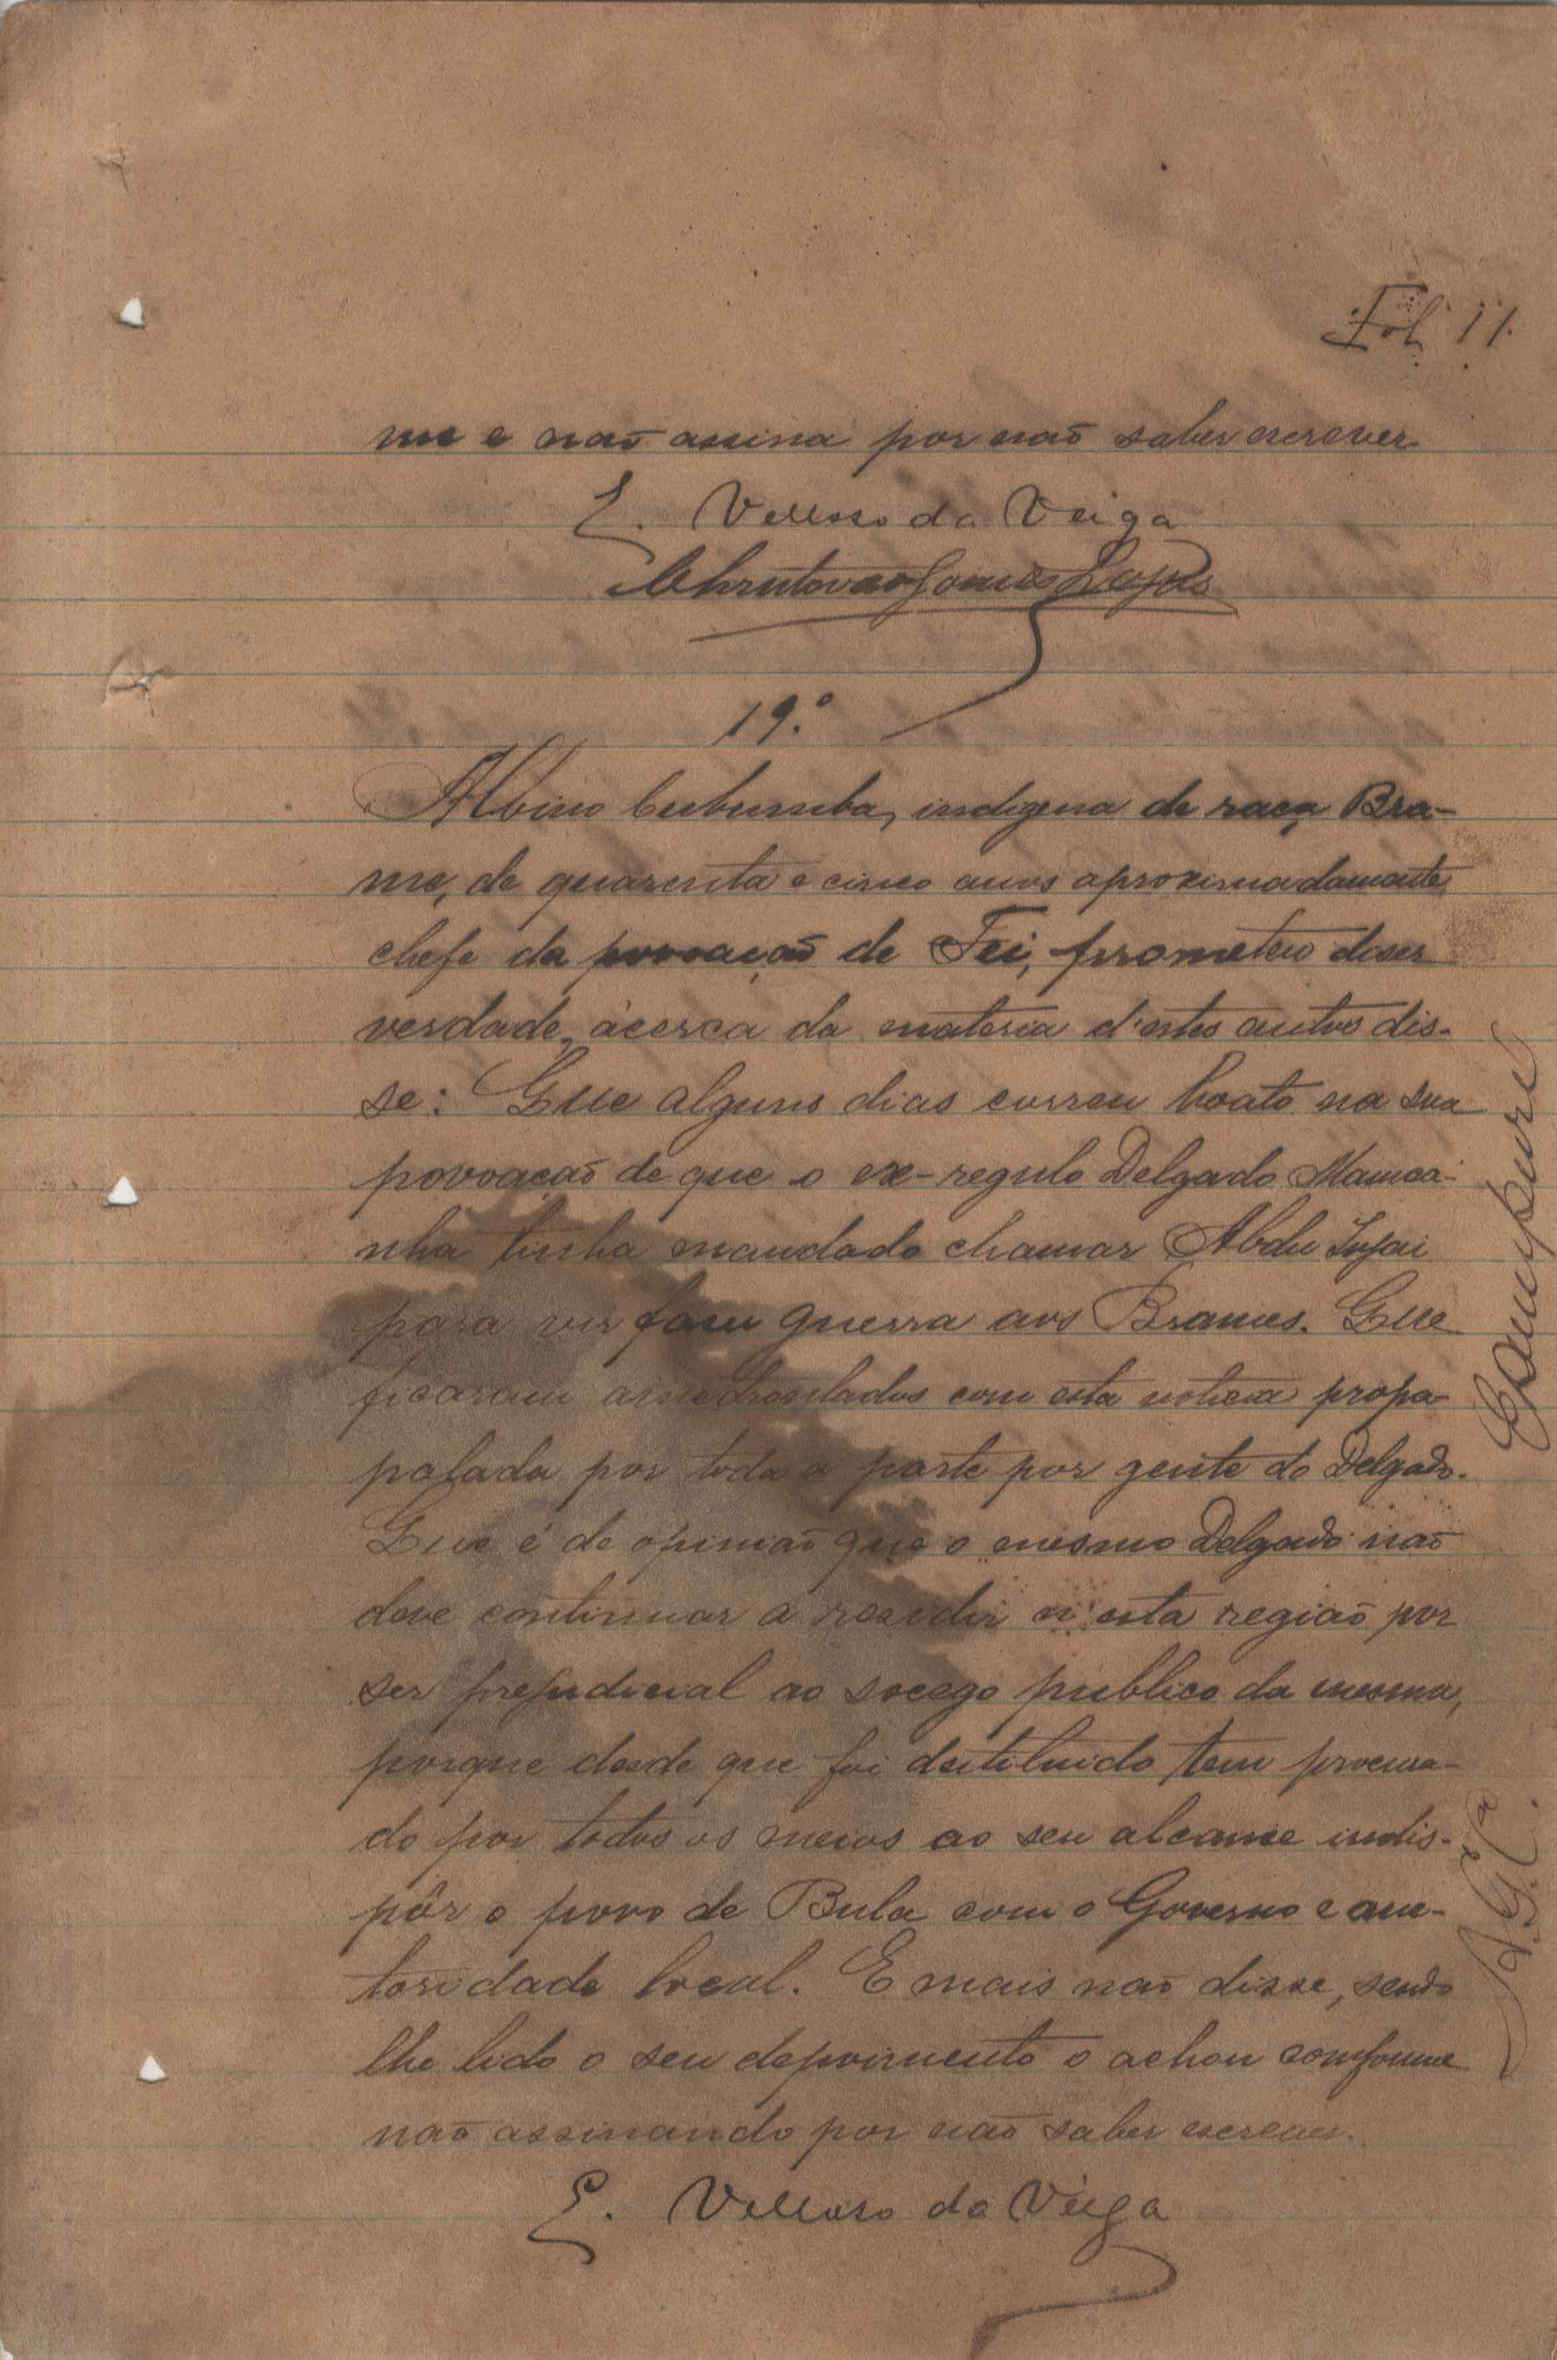 Fol 11.
me e não assina por não saber escrever
E. Velloso da Veiga
Christovão Gomes Lopes
19.º
Albino Cubumba, indigena de raça Bra-
me, de quarenta e cinco anos aproximadamente
chefe da povoação de Fei, prometeu diser
verdade, àcerca da materia d'estes autos dis-
se: Que alguns dias correu boato na sua
povoação de que o ex-regulo Delgado Mancá-
nha tinha mandado chamar Abdu Injai
para vir faser guerra aos Brames. Que
ficaram amedrontados com esta noticia propa-
palada por toda a parte por gente do Delgado.
Que é de opinião que o mesmo Delgado não
deve continuar a residir n'esta região por
ser prejudicial ao socego publico da mesma,
porque desde que foi destituido tem procura-
do por todos os meios ao seu alcance indis-
pôr o povo de Bula com o Governo e auc-
toridade local. E mais não disse, sendo
lhe lido o seu depoimento o achou comforme
não assinando por não saber escrever.
E. Velloso da Veiga